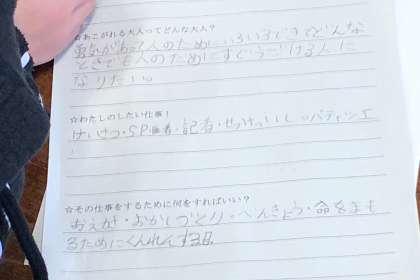 ☆あこがれる大人ってどんな大人？
勇気があって人のためにいろいろできてどんな
ときでも人のためにすぐうごける人に
なりたい。
☆わたしのしたい仕事！
けいさつ・SP・医者・記者・せっけいし・パティシエ
☆その仕事をするために何をすればいい？
おえかき・おかしづくり・べんきょう・命をまも
るためにくんれんする